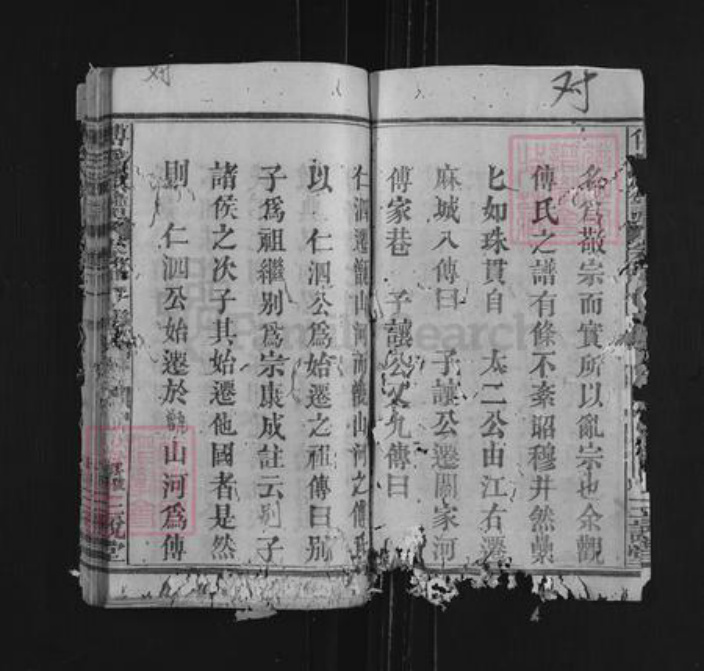 对
对
名爲敬宗而實所以亂宗也余觀
傅氏之譜有條不紊昭穆井然纍
匕如珠貫自 太二公由江右遷
麻城八傳曰 子讓公遷關家河
傅家巷 子讓公又九傳曰
仁泗遷龍山河而後山河之傅氏
以 仁泗公爲始遷之祖傳曰別
子爲祖繼别爲宗康成註云别子
諸侯之次子其始遷他國者是然
則 仁泗公始遷於龍山河爲傅
三說堂